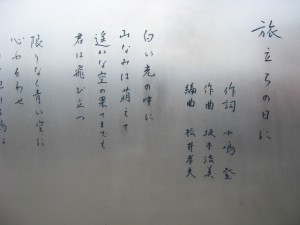 旅立ちの日に
作詞 小嶋 登
作曲 坂本浩美
編曲 松井孝夫
白い光の中に
山なみは萌えて
遥かな空の果てまでも
君は飛び立つ
限りなく青い空に
心ふるわせ